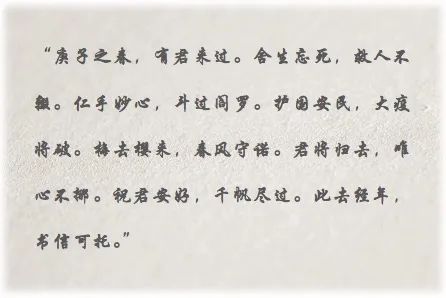 “庚子之春，有君来过。舍生忘死，救人不
辍。仁手妙心，斗过阎罗。护国安民，大瘟
将破。梅去樱来，春风守诺。君将归去，唯
心不挪。祝君安好，千帆尽过。此去经年，
书信可托。”